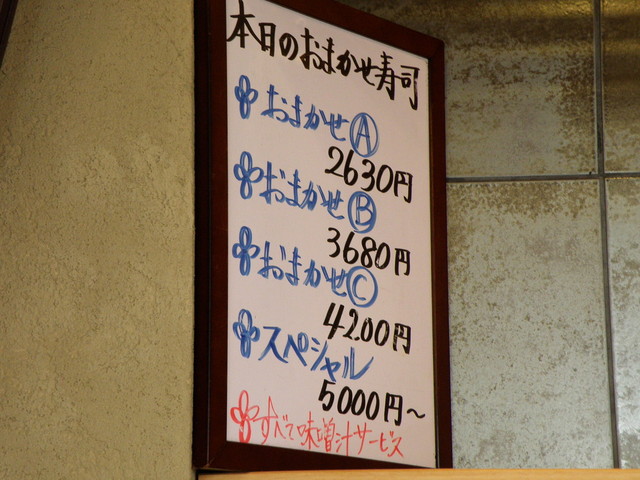 本日のおまかせ寿司
おまかせⒶ
2630円
おまかせⒷ
3680円
おまかせⒸ
4200円
スペシャル
5000円～
すべて味噌汁サービス